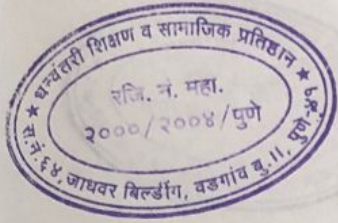 धन्वंतरी शिक्षण व सामाजिक प्रतिष्ठान
रजि. नं. महा.
२०००/२००४/पुणे
★ स.नं. ६४, जाधवर बिल्डींग, वडगांव बु.॥, पुणे-४१ ★